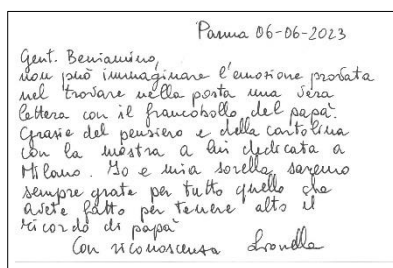 Parma 06-06-2023
Gent. Beniamino,
non può immaginare l'emozione provata
nel trovare nella posta una vera
lettera con il francobollo del papà.
Grazie del pensiero e della cartolina
con la mostra a lui dedicata a
Milano. Io e mia sorella, saremo
sempre grate per tutto quello che
avete fatto per tenere alto il
ricordo di papà
Con riconoscenza Lionella